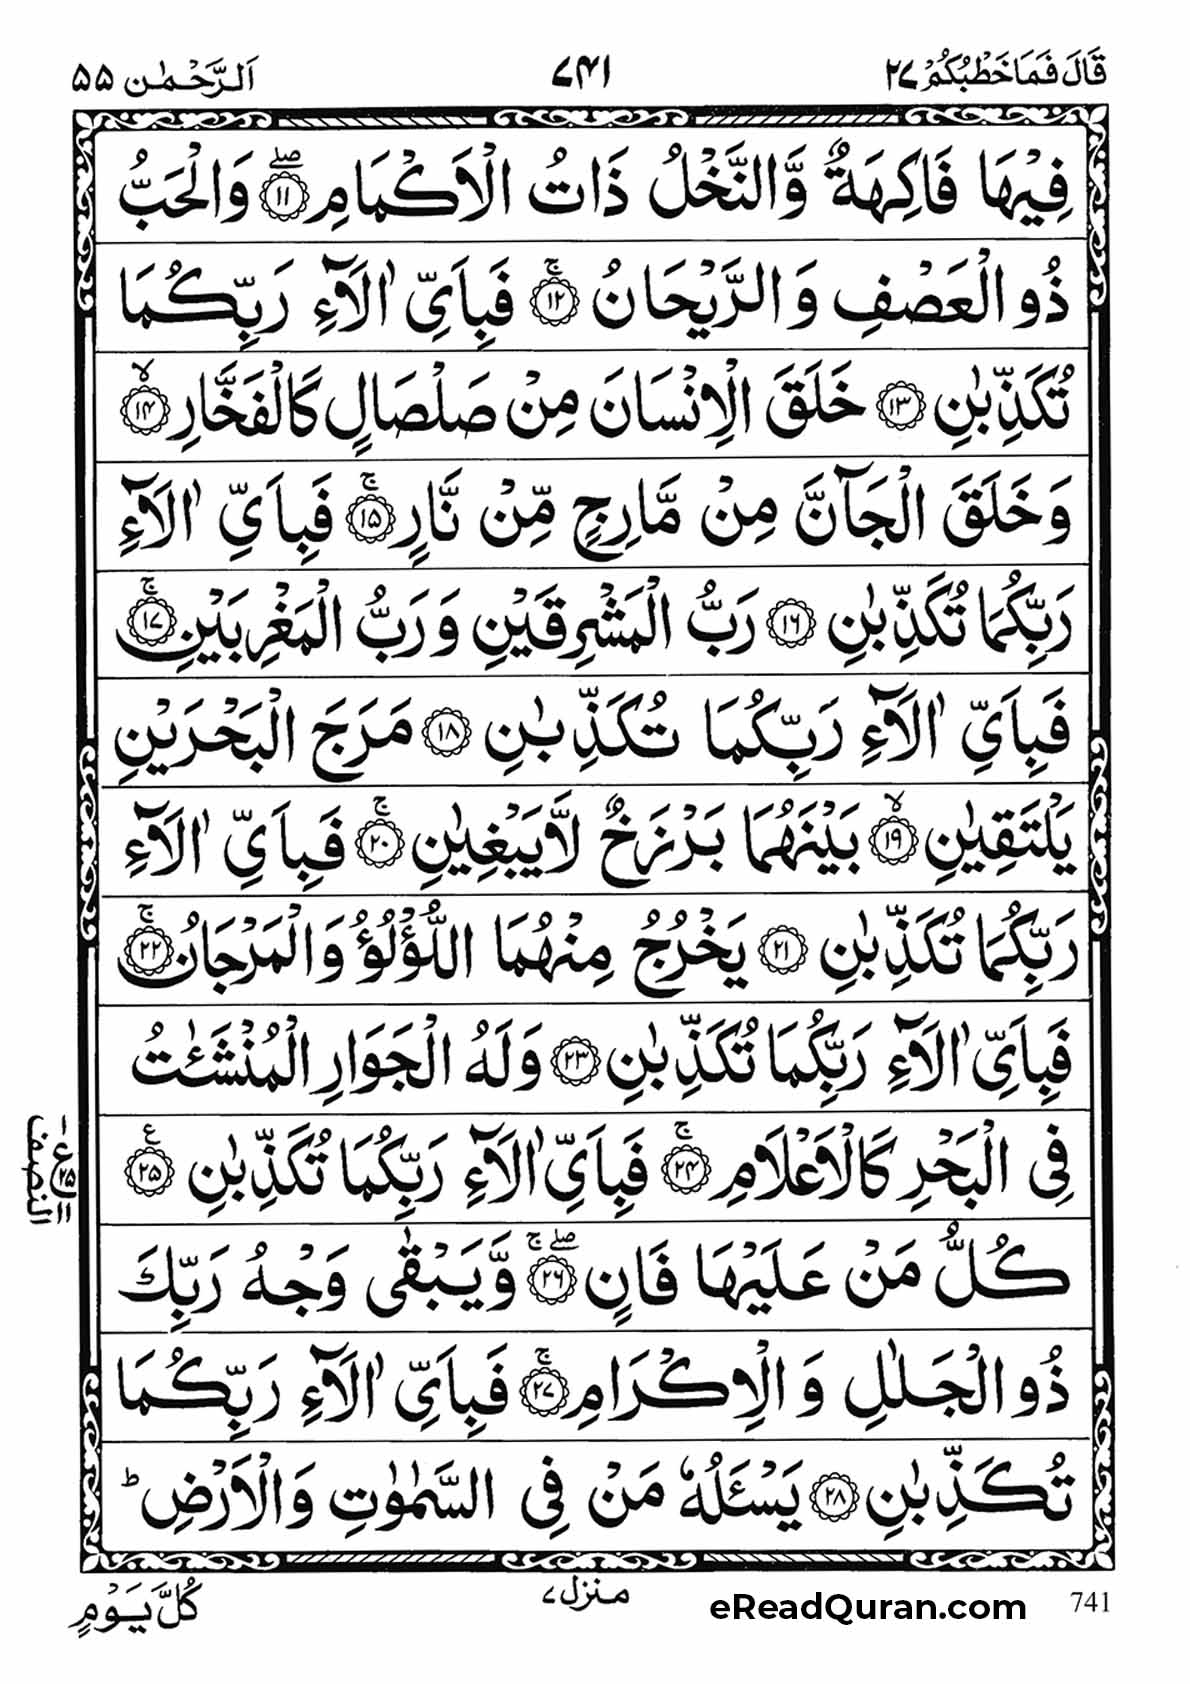 قَالَ فَمَا خَطْبُكُمْ ٢٧ ٧٤١ اَلرَّحْمٰن ٥٥
فِيْهَا فَاكِهَةٌ وَّالنَّخْلُ ذَاتُ الْاَكْمَامِ ۖ ١١ وَالْحَبُّ
ذُو الْعَصْفِ وَالرَّيْحَانُ ۚ ١٢ فَبِاَيِّ اٰلَآءِ رَبِّكُمَا
تُكَذِّبٰنِ ١٣ خَلَقَ الْاِنْسَانَ مِنْ صَلْصَالٍ كَالْفَخَّارِ ۙ ١٤
وَخَلَقَ الْجَآنَّ مِنْ مَّارِجٍ مِّنْ نَّارٍ ۚ ١٥ فَبِاَيِّ اٰلَآءِ
رَبِّكُمَا تُكَذِّبٰنِ ١٦ رَبُّ الْمَشْرِقَيْنِ وَرَبُّ الْمَغْرِبَيْنِ ۚ ١٧
فَبِاَيِّ اٰلَآءِ رَبِّكُمَا تُكَذِّبٰنِ ١٨ مَرَجَ الْبَحْرَيْنِ
يَلْتَقِيٰنِ ۙ ١٩ بَيْنَهُمَا بَرْزَخٌ لَّا يَبْغِيٰنِ ۚ ٢٠ فَبِاَيِّ اٰلَآءِ
رَبِّكُمَا تُكَذِّبٰنِ ٢١ يَخْرُجُ مِنْهُمَا اللُّؤْلُؤُ وَالْمَرْجَانُ ۚ ٢٢
فَبِاَيِّ اٰلَآءِ رَبِّكُمَا تُكَذِّبٰنِ ٢٣ وَلَهُ الْجَوَارِ الْمُنْشَـٰٔتُ
فِى الْبَحْرِ كَالْاَعْلَامِ ۚ ٢٤ فَبِاَيِّ اٰلَآءِ رَبِّكُمَا تُكَذِّبٰنِ ع ٢٥
النصف
كُلُّ مَنْ عَلَيْهَا فَانٍ ۖ ۚ ٢٦ وَّيَبْقٰى وَجْهُ رَبِّكَ
ذُو الْجَلٰلِ وَالْاِكْرَامِ ۚ ٢٧ فَبِاَيِّ اٰلَآءِ رَبِّكُمَا
تُكَذِّبٰنِ ٢٨ يَسْـَٔلُهٗ مَنْ فِى السَّمٰوٰتِ وَالْاَرْضِ ؕ
كُلَّ يَوْمٍ منزل ٧ eReadQuran.com 741